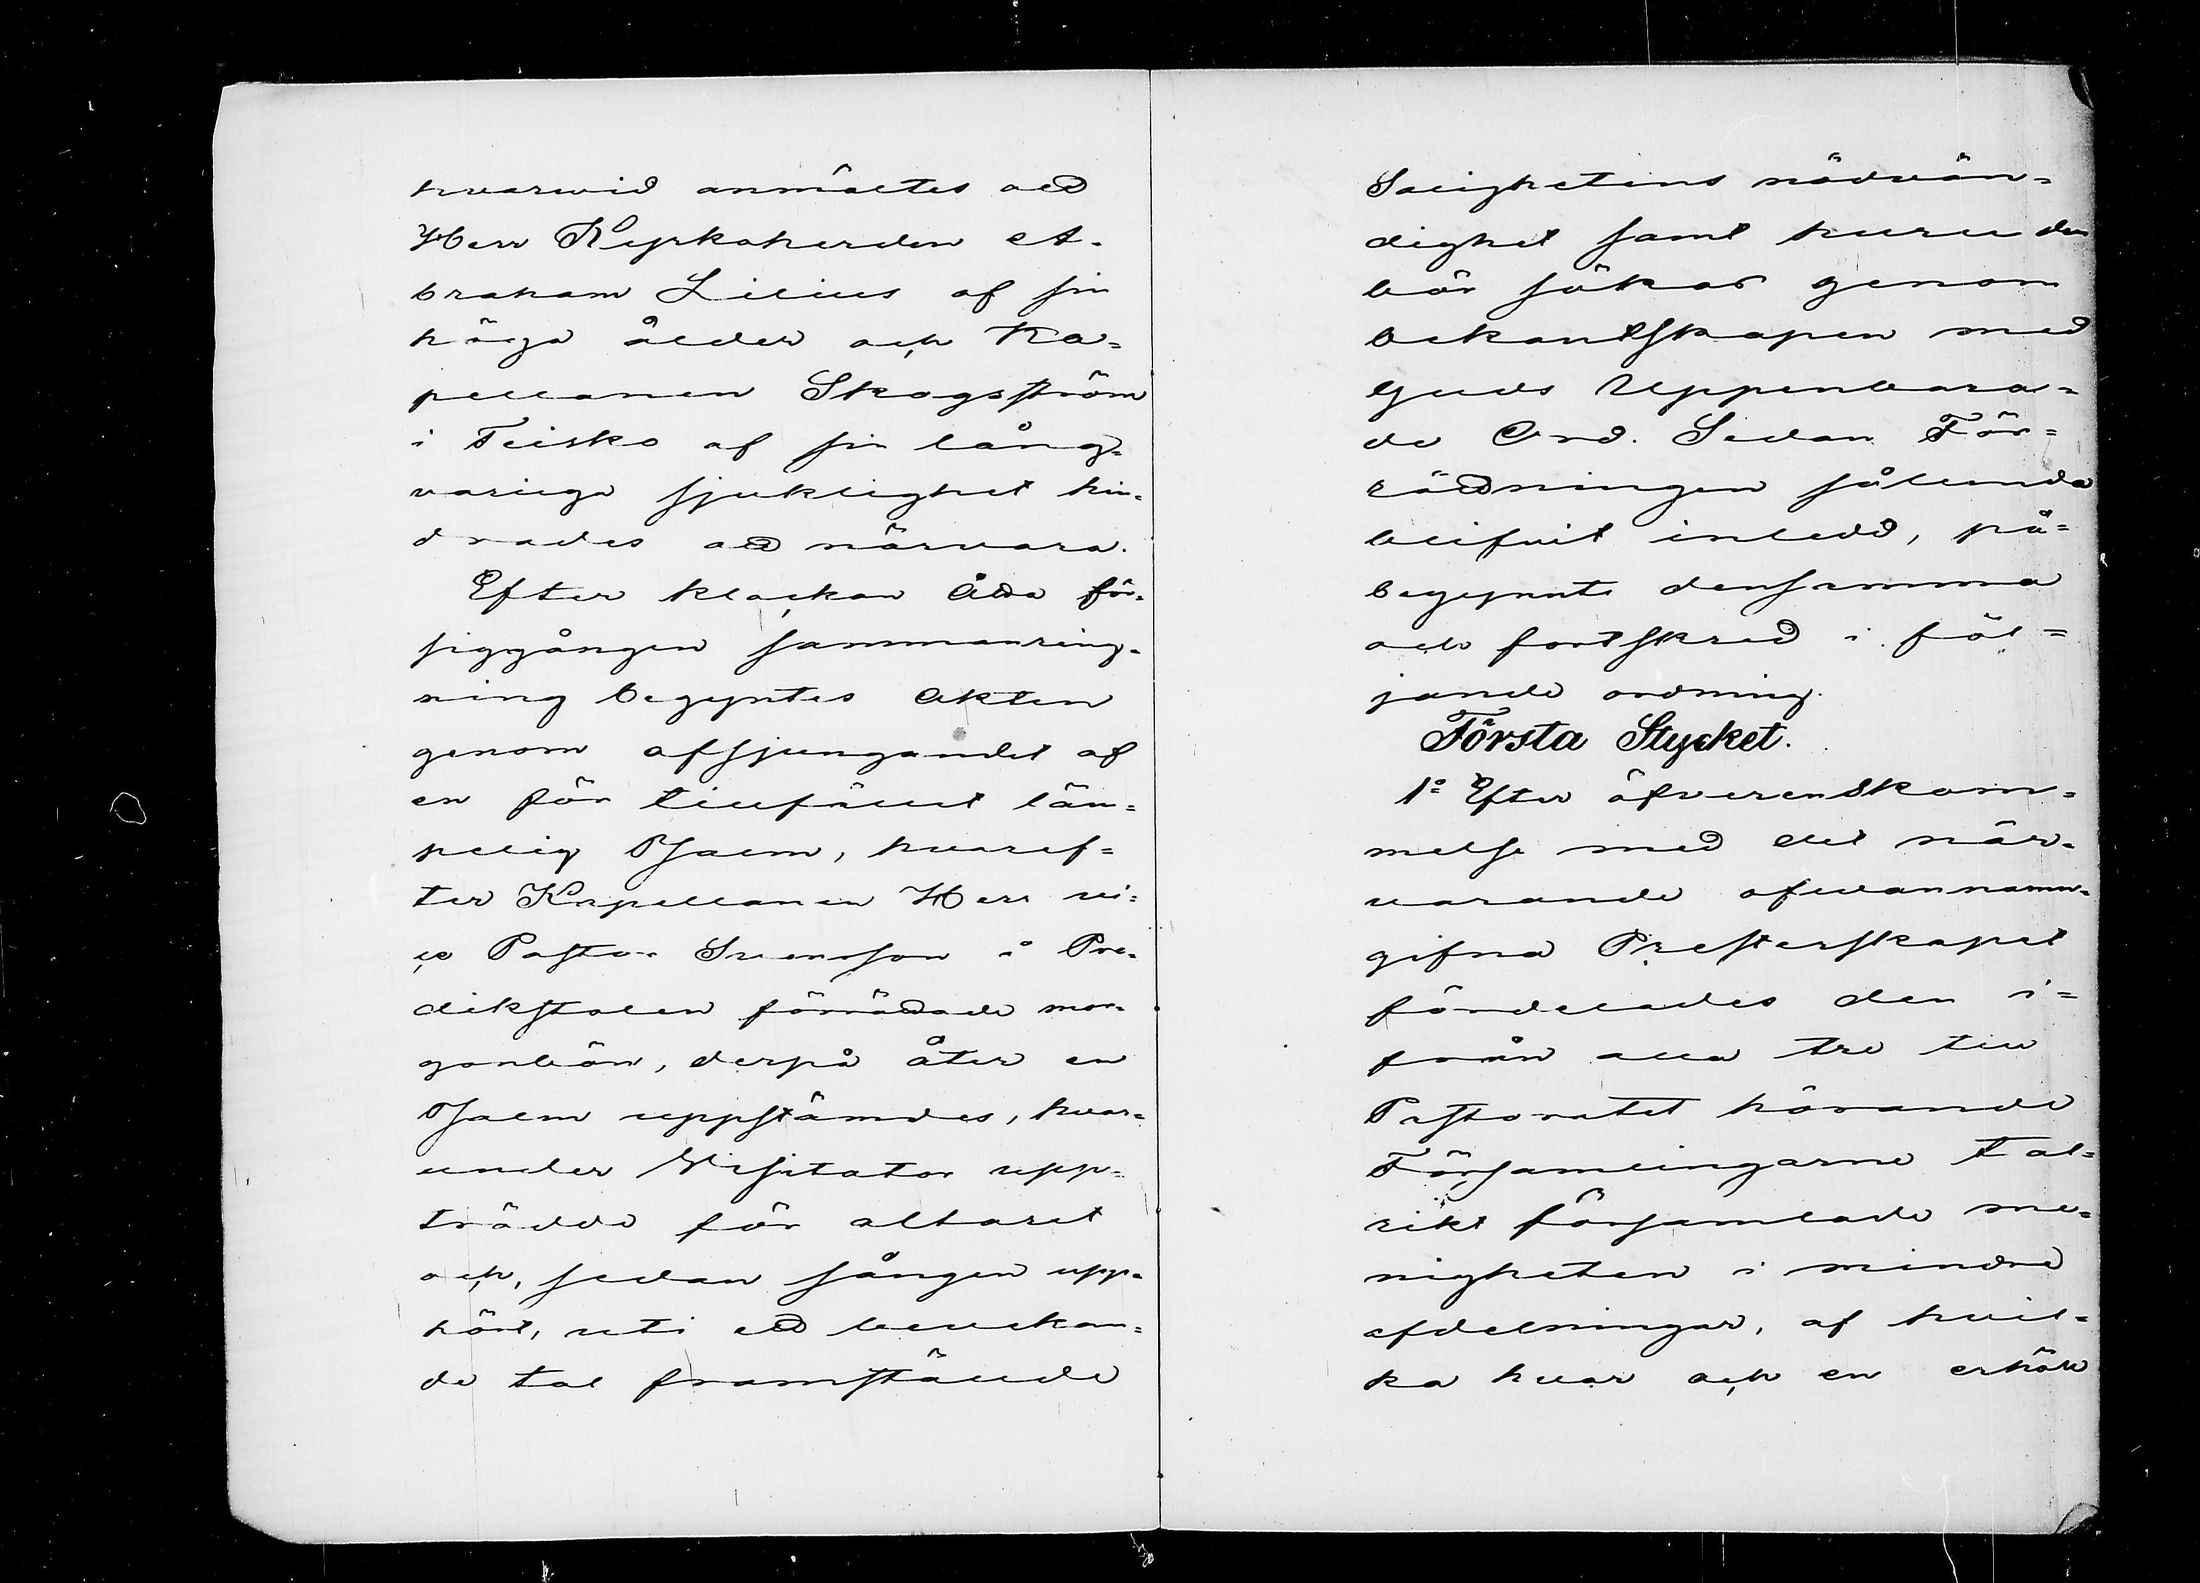 hvarwid anmältes att
Herr Kyrkoherden A-
braham Lilius af sin
höga ålder och Ka=
pellanen Skogsström
i Teisko af sin lång-
variga sjuklighet hin-
drades att närvara.
Efter klockan åtta för-
siggången sammanring-
ning begyntes Akten
genom afsjungandet af
en för tillfället läm-
pelig Psalm, hvaref=
ter Kapellanen Herr vi=
ce Pastor Svensson i Pre-
dikstolen förrättade mor-
gonbön, derpå åter en
Psalm uppstämdes, hvar-
under Visitator upp-
trädde för altaret
och, sedan sången upp-
hört, uti ett bevekan=
de tal framstälde
Salighetens nödvän=
dighet samt huru den
bör sökas genom
bekantskapen med
Guds Uppenbara=
de Ord. Sedan För=
rättningen sålunda
blifvit inledd, på=
begynnte densamma
och fortskred i föl=
jande ordning.
Första Stycket.
1:o Efter öfverenskom=
melse med det när-
varande ofvannamn-
gifna Presterskapet
fördelades den i=
från alla tre till
Pastoratet hörande
Församlingarne tal=
rikt församlade me=
nigheten i mindre
afdelningar, af hvil=
ka hvar och en erhöll